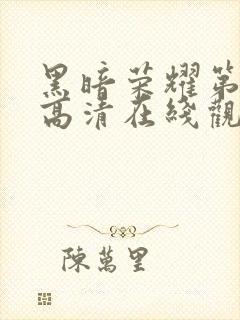 黑暗荣耀第
高清在线觀
陳萬里